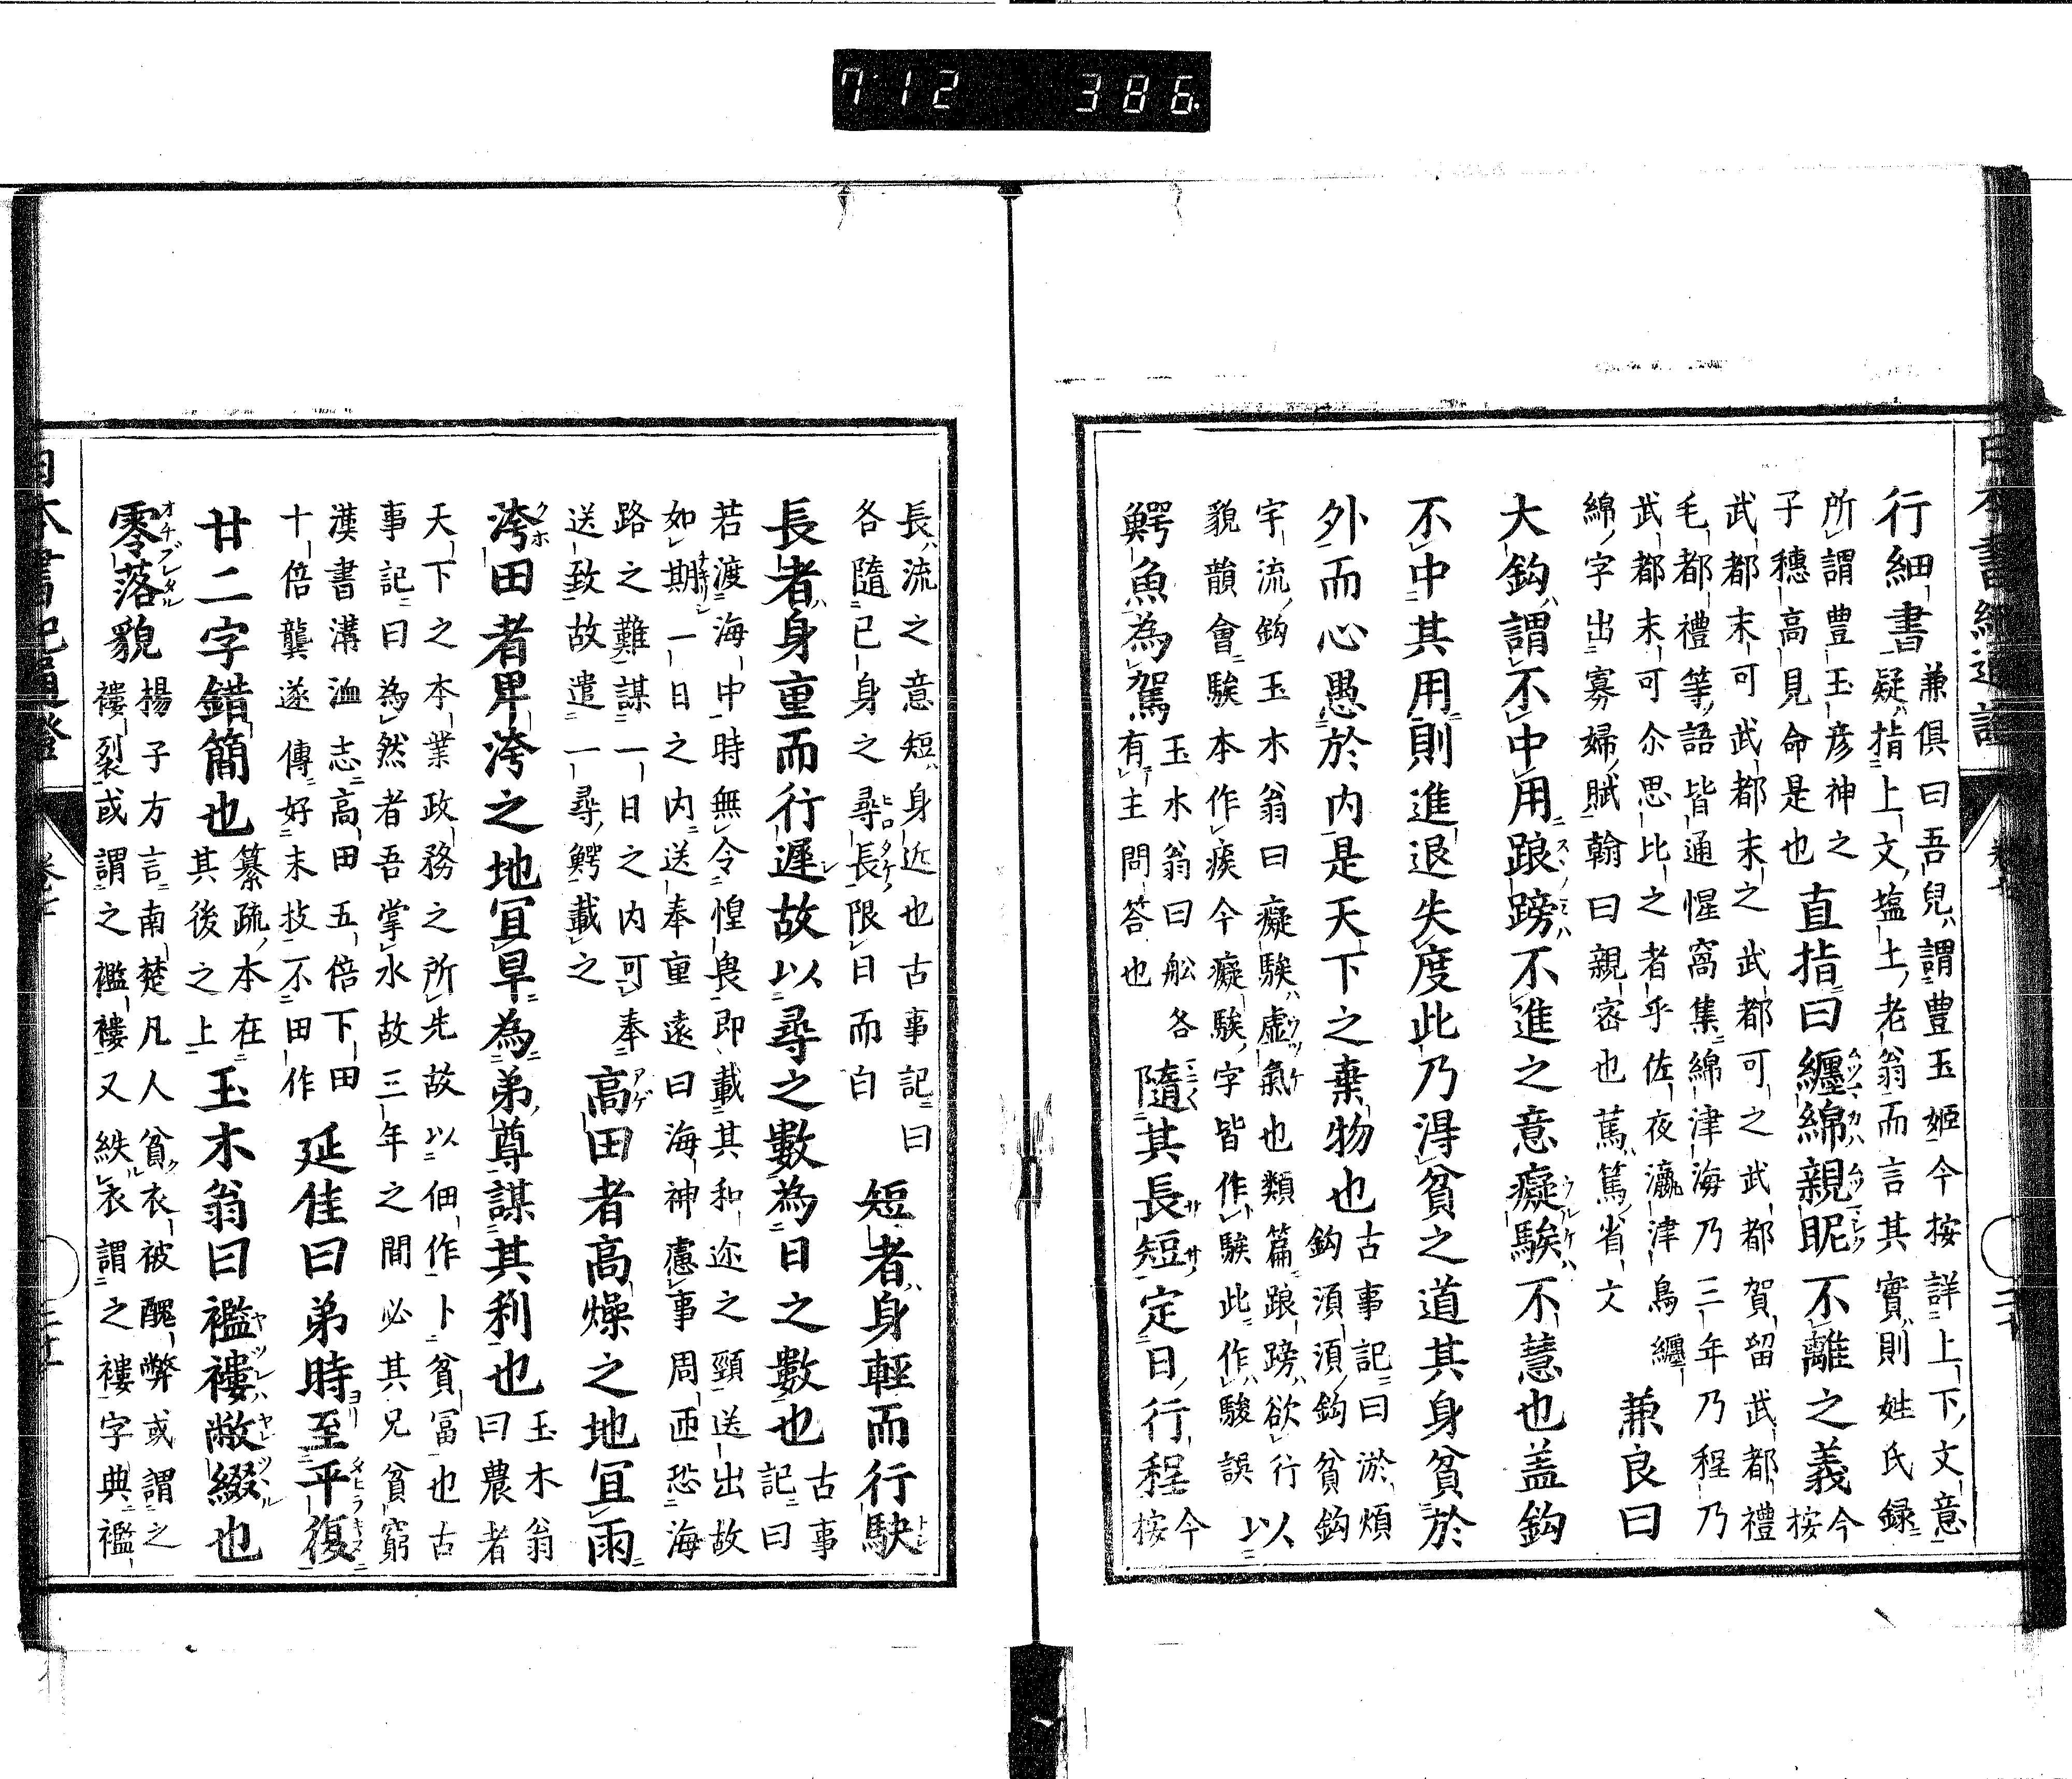 712 386
日本書紀通證
行細書
兼俱曰吾兒謂豊玉姬今按詳上下文意
疑指上文塩土老翁而言其實則姓氏録
所謂豊玉彦神之
子穗高見命是也
直指曰纏綿親昵不離之義
今
按
武都末可武都末之武都可之武都賀留武都禮
毛都禮等語皆通惺窩集綿津海乃三年乃程乃
武都末可尒思比之者乎佐夜瀛津鳥纏
綿字出寡婦賦翰曰親密也萬篤省文
兼良曰
大鈎謂不中用踉䠙不進之意癡騃不慧也盖鈎
不中其用則進退失度此乃得貧之道其身貧於
外而心愚於内是天下之棄物也
古事記曰淤煩
鈎湏湏鈎貧鈎
宇流鈎玉木翁曰癡騃虚氣也類篇踉䠙欲行
貌韻會騃本作𤸳今癡騃字皆作騃此作駿誤
以
上
鰐魚為駕
玉木翁曰舩各
有主問答也
隨其長短定日行程
今
按
長流之意短身近也古事記曰
各隨己身之尋長限日而白
短者身輕而行駃
長者身重而行遲故以尋之數為日之數也
古事
記曰
若渡海中時無令惶畏即載其和迩之頸送出故
如期一日之内送奉重遠曰海神慮事周匝恐海
路之難謀一日之内可奉
送致故遣一尋鰐載之
高田者高燥之地宜雨
洿田者卑洿之地宜早為弟尊謀其利也
玉木翁
曰農者
天下之本業政務之所先故以佃作卜貧冨也古
事記曰為然者吾掌水故三年之間必其兄貧窮
漢書溝洫志高田五倍下田
十倍龔遂傳好末技不田作
延佳曰弟時至平復
廿二字錯簡也
纂疏本在
其後之上
玉木翁曰襤褸敝綴也
零落貌
楊子方言南楚凡人貧衣被醜弊或謂之
褸裂或謂之襤褸又紩衣謂之褸字典襤
日本書紀通證
卷七